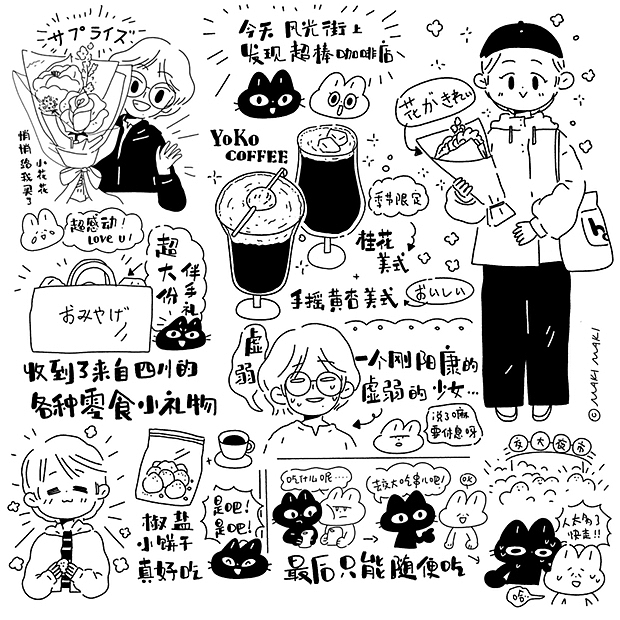 サプライズ
悄悄给我买了
小花花
今天风光街上
发现超棒咖啡店
花がきれい
YOKO
COFFEE
季节限定
桂花
美式
+
手摇黄杏美式
おいしい
超感动!
LOVE U!
超大份
伴手礼
おみやげ
收到了来自四川的
各种零食小礼物
虚弱
一个刚阳康的
虚弱的少女...
说了嘛
要休息呀
© MAKI MAKI
+
椒盐
小饼干
真好吃
是吧!
是吧!
吃什么呢....
去交大吃串儿吧!
OK
最后只能随便吃
交大夜市
人太多了
快走!!
哈..